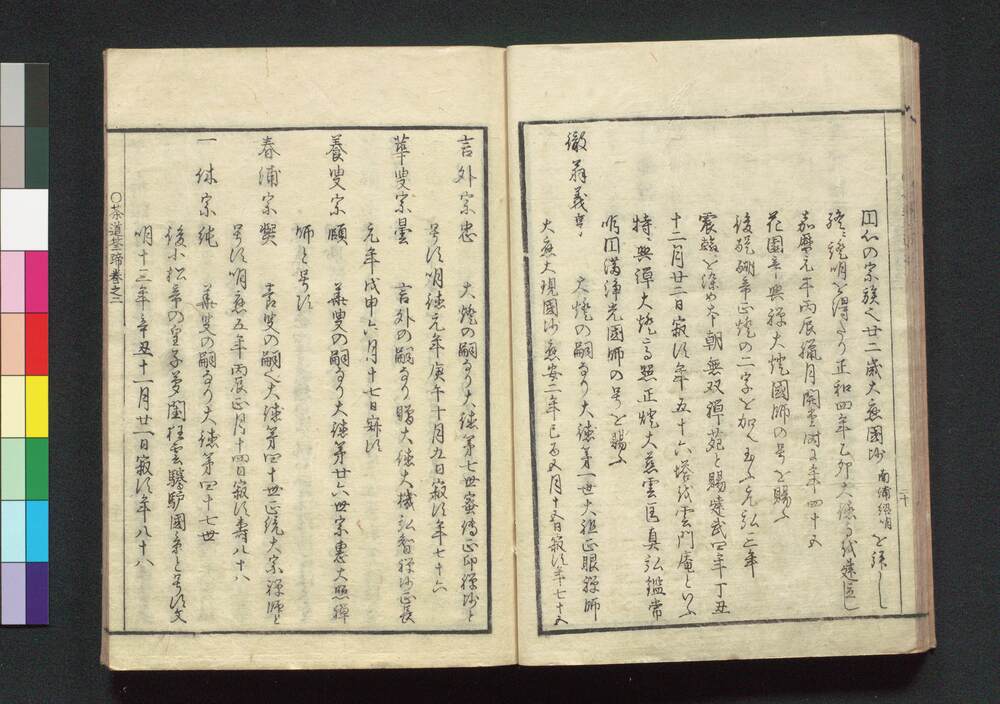 国の宗族也廿二歳大應國師南浦紹明を拝し
證明を得たり正和四年乙卯大徳寺を建立し
嘉暦元年丙辰臘月開堂時に年四十五
花園帝興禅大燈國師の号を賜ふ
後醍醐帝正燈の二字を加へ玉ふ元弘三年
宸翰を染め本朝無双禅苑と賜建武四年丁丑
十二月廿二日寂す年五十六塔を雲門庵といふ
特興禅大燈高照正燈大慈雲匡真弘鑑常
明圓満浄光國師の号を賜ふ
徹翁義亨 大燈の嗣なり大徳第一世大祖正眼禅師
大應大現國師應安二年己酉五月十五日寂す年七十五
言外宗忠 大燈の嗣なり大徳第七世密傳正印禅師と
号す明徳元年庚午十月五日寂す年七十六
華叟宗曇 言外の嗣なり贈大徳大機弘智禅師正長
元年戊申六月十七日寂す
養叟宗頤 華叟の嗣なり大徳第廿六世宗惠大照禅
師と号す
春浦宗熈 養叟の嗣也大徳第四十世正続大宗禅師と
号す明應五年丙辰正月十四日寂す壽八十八
一休宗純 華叟の嗣なり大徳第四十七世
後小松帝の皇子夢閨狂雲驢國景と号す文
明十三年辛丑十一月廿一日寂す年八十八
〇茶道筌蹄巻之二